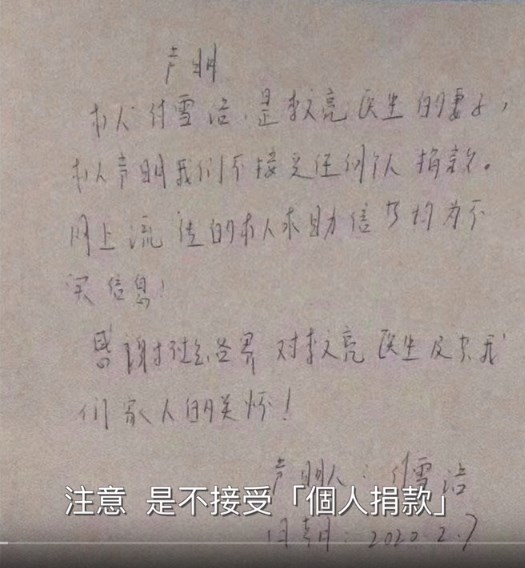 声明
本人付雪洁,是李文亮医生的妻子,
本人声明我们不接受任何个人捐款。
网上流传的本人求助信息均为不
实信息!
感谢社会各界对李文亮医生及其我
们家人的关怀!
声明人:付雪洁
注意 是不接受「個人捐款」
日期:2020.2.7